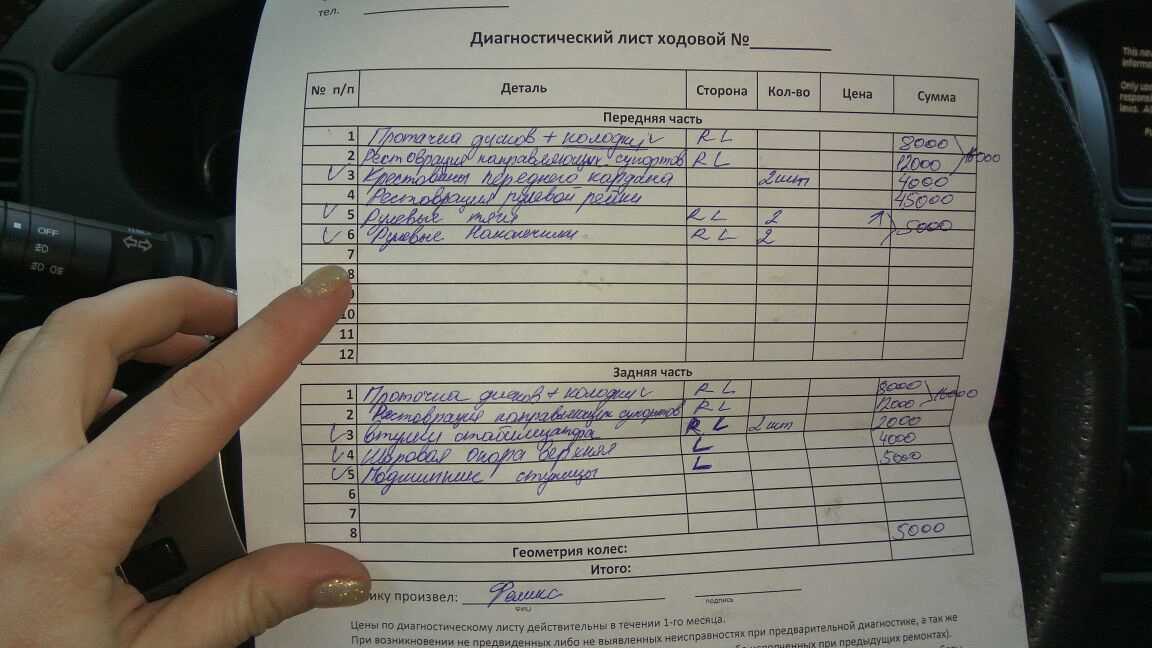 тел.
Диагностический лист ходовой №
№ п/п Деталь Сторона Кол-во Цена Сумма
Передняя часть
1 Проточка дисков + колодки R L 8000
2 Рестоврация направляющих супортов R L 12000
3 Крестовины переднего кардана 2шт 4000
4 Рестоврация рулевой рейки 45000
5 Рулевые тяги R L 2
6 Рулевые Наконечники R L 2 5000
7
8
10
11
12
Задняя часть
1 Проточка дисков + колодки R L 8000
2 Рестоврация направляющих супортов R L 12000
3 Втулки стабилизатора R L 2шт 2000
4 Шаровая опора верхняя L 4000
5 Подшипник ступицы L 5000
6
7
8 5000
Геометрия колес:
Итого:
произвел: Феликс
ФИО подпись
Цены по диагностическому листу действительны в течении 1-го месяца.
При возникновении не предвиденных либо не выявленных неисправностях при предварительной диагностике, а так же
исполненных при предыдущих ремонтах).
OFF
This
informa
Only use
respons
laws.